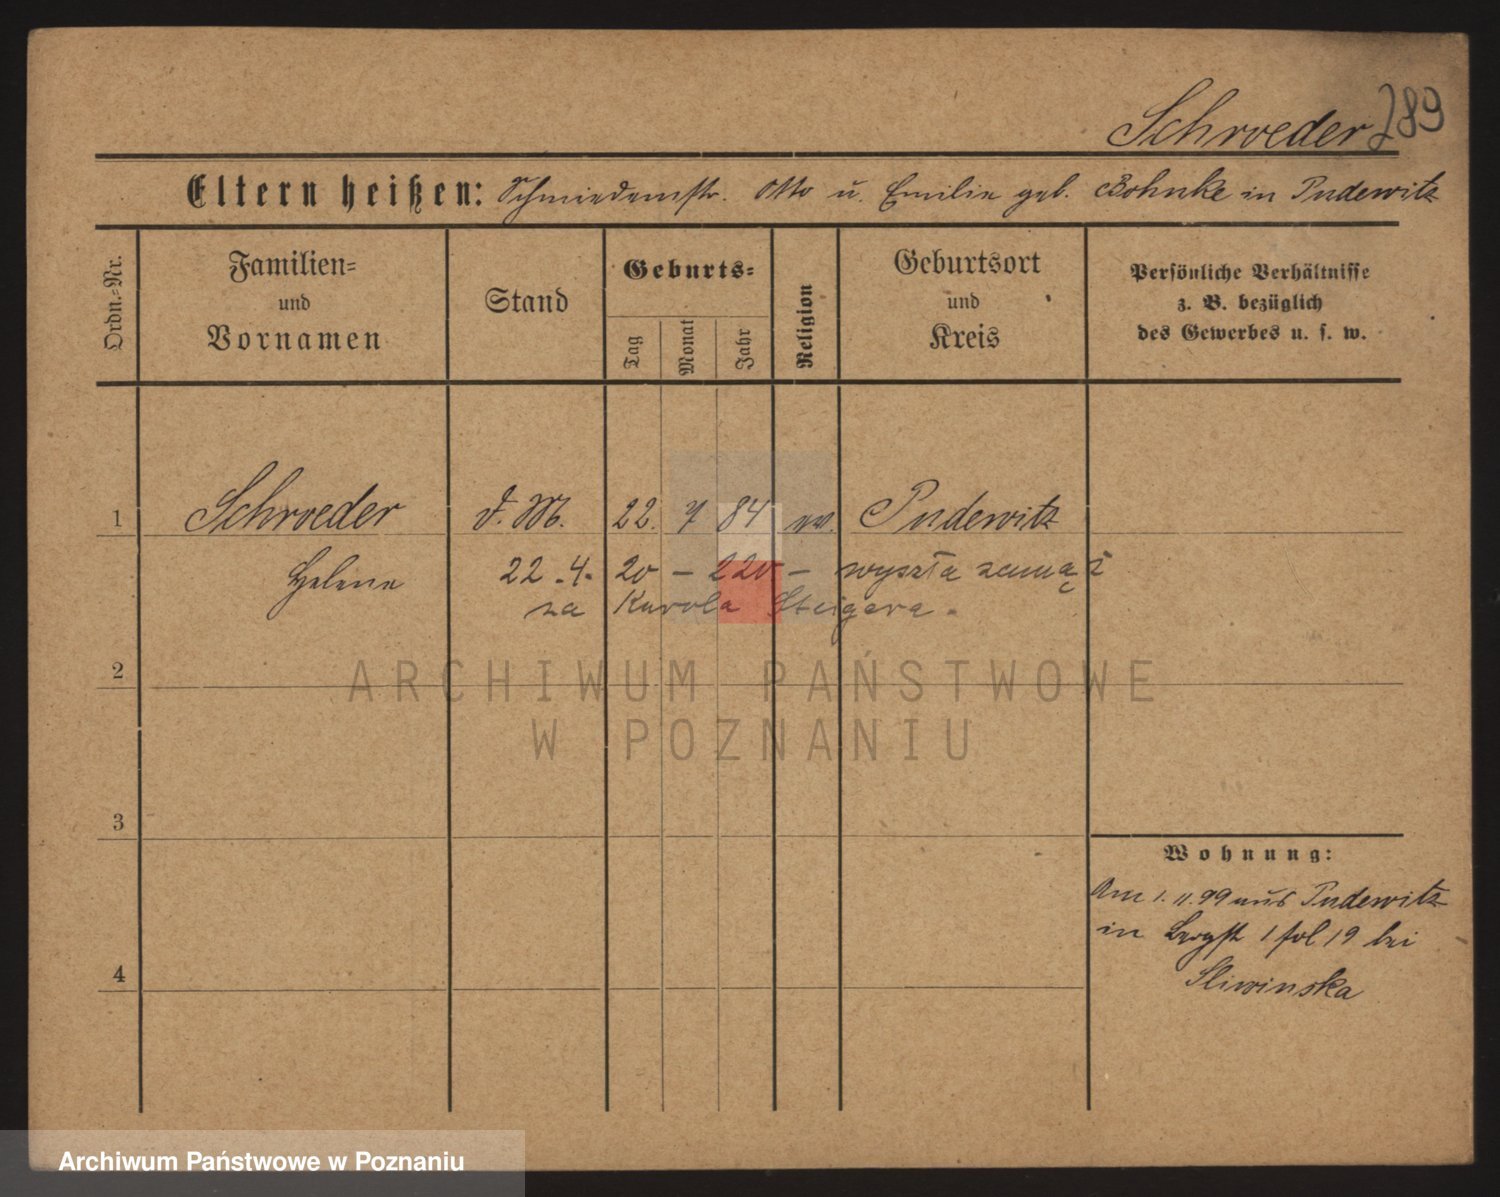 Schroeder 289
Eltern heißen: Schmiedemstr. Otto u. Emilie geb. Bohnke in Pudewitz
Ordn.-Nr.
Familien-
und
Vornamen
Stand
Geburts-
Tag
Monat
Jahr
Religion
Geburtsort
und
Kreis
Persönliche Verhältnisse
z. B. bezüglich
des Gewerbes u. s. w.
1 Schroeder d. M. 22. 7 84 ev. Pudewitz
Helene 22.4. 20 – 220 – wyszła zamąż
za Karola Steigera.
2
3
4
Wohnung:
Am 1.11.99 aus Pudewitz
in Bergstr 1 fol 19 bei
Sliwinska
ARCHIWUM PAŃSTWOWE
W POZNANIU
Archiwum Państwowe w Poznaniu